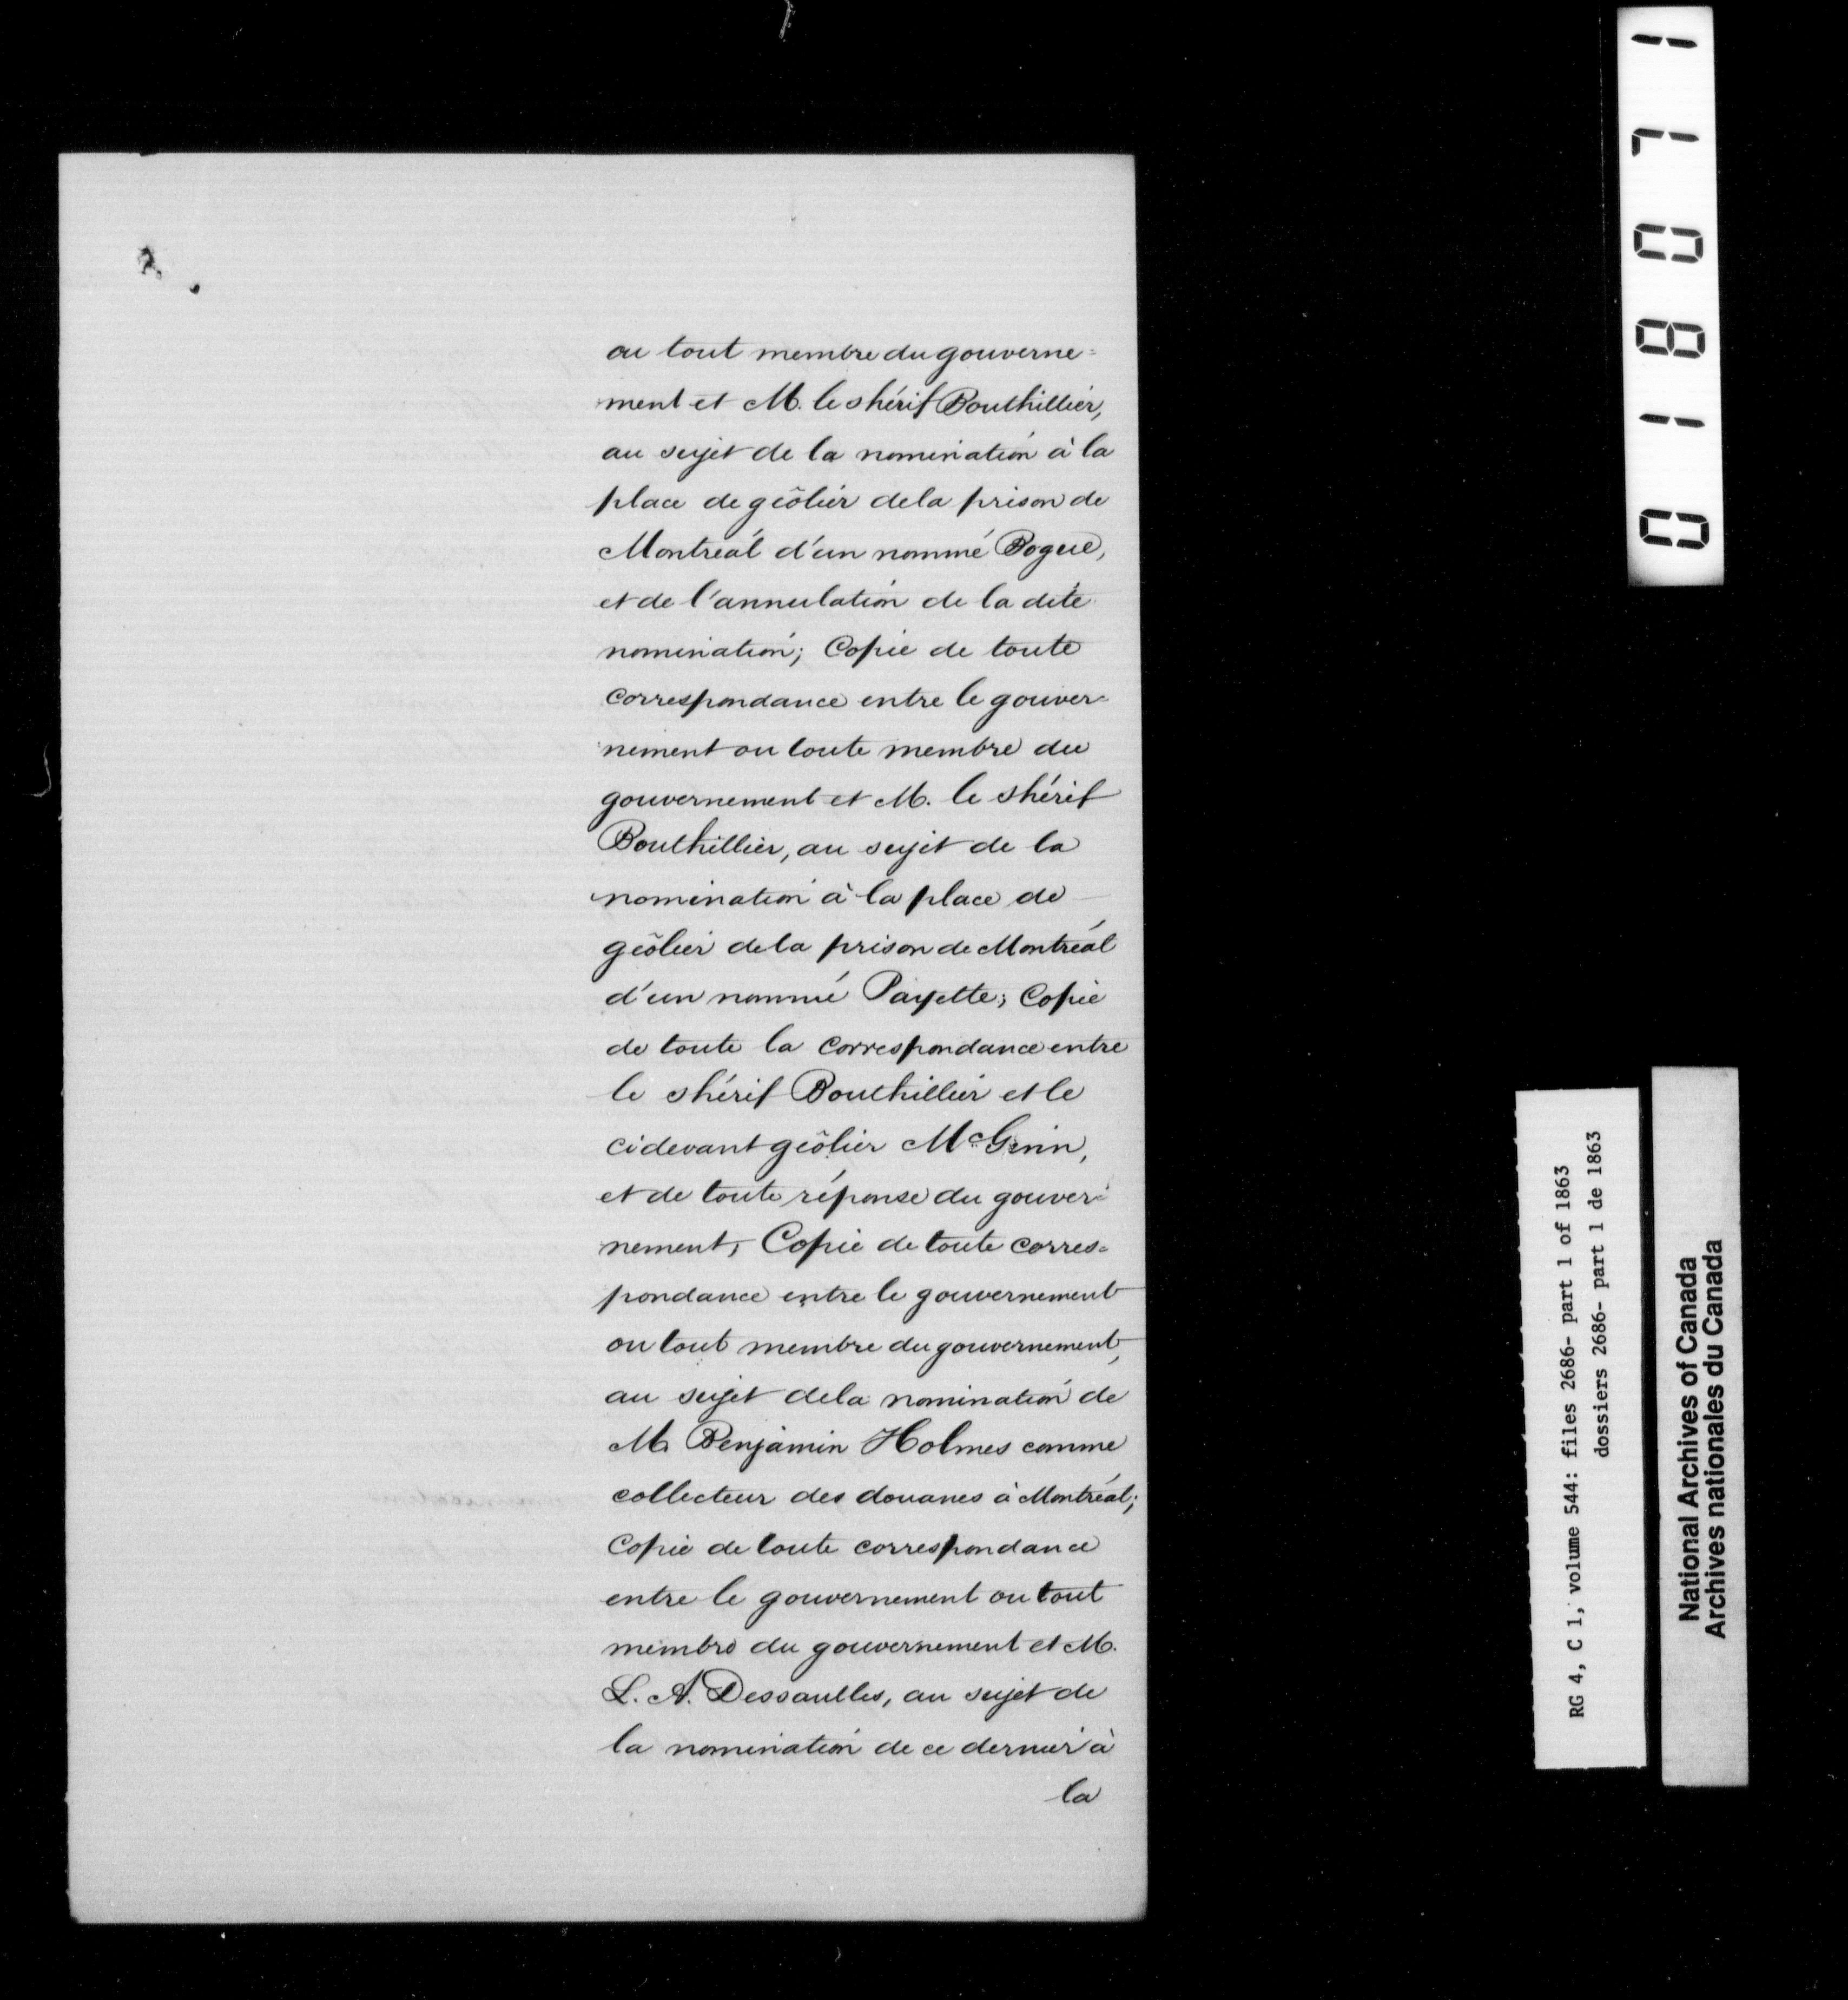 2.
ou tout membre du gouverne=
ment et M. le shérif Bouthillier,
au sujet de la nomination à la
place de geôlier de la prison de
Montréal d'un nommé Pogue,
et de l'annulation de la dite
nomination; Copie de toute
correspondance entre le gouver=
nement ou toute membre du
gouvernement et M. le shérif
Bouthillier, au sujet de la
nomination à la place de
geôlier de la prison de Montréal
d'un nommé Payette; Copie
de toute la correspondance entre
le shérif Bouthillier et le
cidevant geôlier McGinn,
et de toute réponse du gouver=
nement, Copie de toute corres=
pondance entre le gouvernement
ou tout membre du gouvernement,
au sujet de la nomination de
M. Benjamin Holmes comme
collecteur des douanes à Montréal;
Copie de toute correspondance
entre le gouvernement ou tout
membre du gouvernement et M.
L. A. Dessaulles, au sujet de
la nomination de ce dernier à
la
018071
RG 4, C 1, volume 544: files 2686- part 1 of 1863
dossiers 2686- part 1 de 1863
National Archives of Canada
Archives nationales du Canada